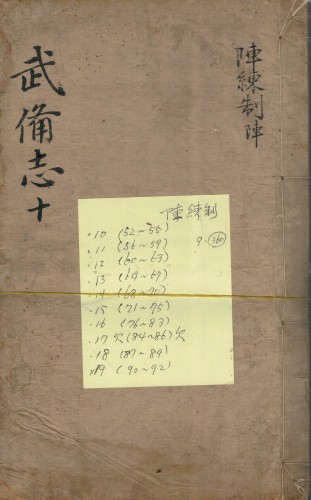 陣練制陣
武備志十
陣練制
9.㊱
.10 (52~55)
.11 (56~59)
.12 (60~63)
.13 (64~67)
.14 (68~70)
.15 (71~75)
.16 (76~83)
.17 欠(84~86)欠
.18 (87~89)
.19 (90~92)